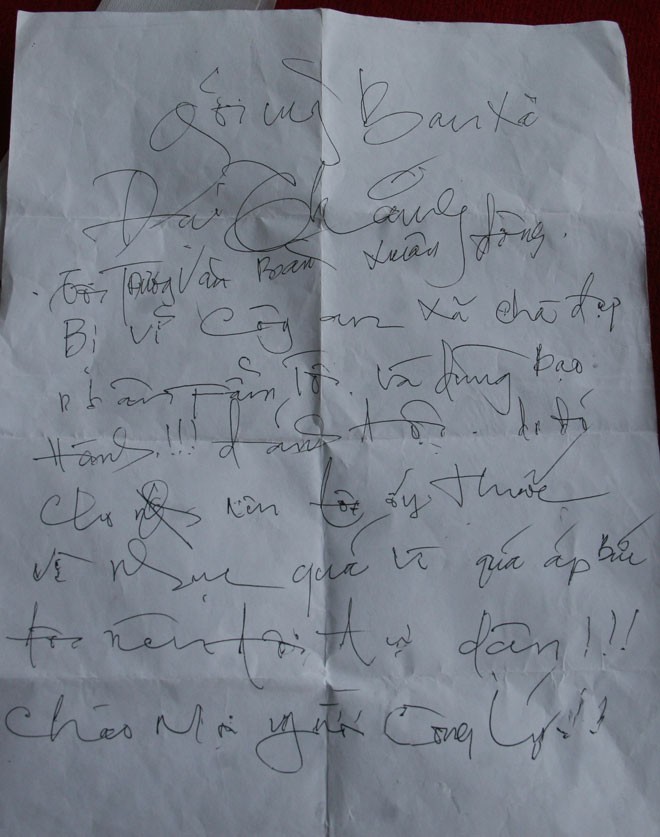 gởi uỷ Ban xã
Đại Thắng
Tôi Trương Văn Xuân đồng.
Bị vì Công an xã chà đạp
nhân Phẩm Tôi và dùng bạo
Hành!!! đánh tôi do đó
cho nên ấy thức
về nhục quá vì quá áp Bức
tôi nên tôi tự dận!!!
chào Mọi người Công lý!!!